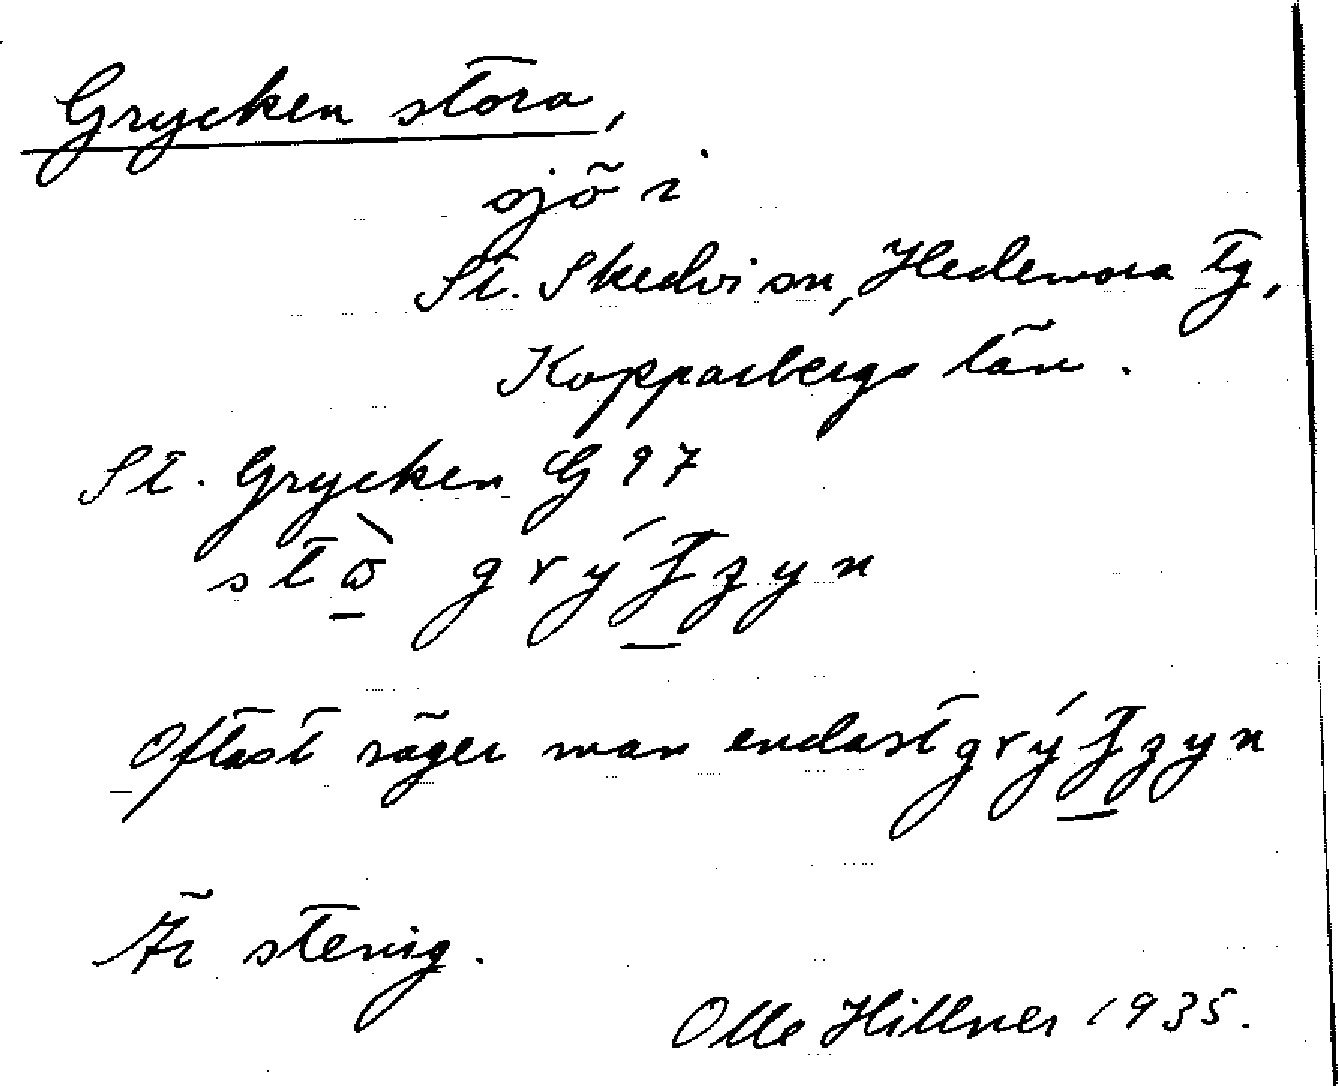 Grycken stora,
sjö i
St. Skedvi sn, Hedemora tg,
Kopparbergs län.
St. Grycken G 97
Oftast säger man endast
Är stenig.
Olle Hillner 1935.